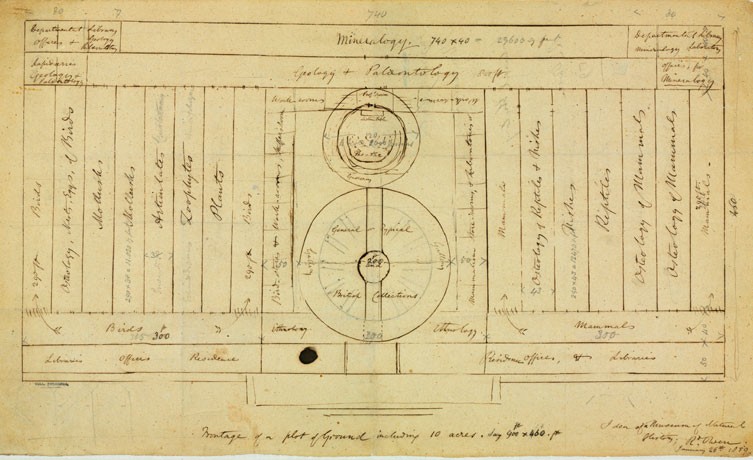 740
Departmental Library
Offices & Geology
Mineralogy. 740 x 40 =
Departmental Library
Mineralogy Laboratory
offices, for
Mineralogy
Geology + Palæontology
Work-rooms
Birds
Osteology, Nests, Eggs, of Birds
Mollusks
Mollusks
Articulates
Zoophytes
Plants
Birds
295 ft
Theatre
General Typical
200
British Collections
Gallery
Mammals
Osteology of Reptiles & Fishes
Fishes
Reptiles
Osteology of Mammals
Osteology of Mammals
Mammals
460
Birds
300
Ethnology
300
Ethnology.
Mammals
300
Libraries Offices Residence
Residence Offices, & Libraries
Frontage of a plot of Ground including 10 acres. Say 900 ft x 460. ft
Idea of a Museum of Natural
History; Rd. Owen
January 1859